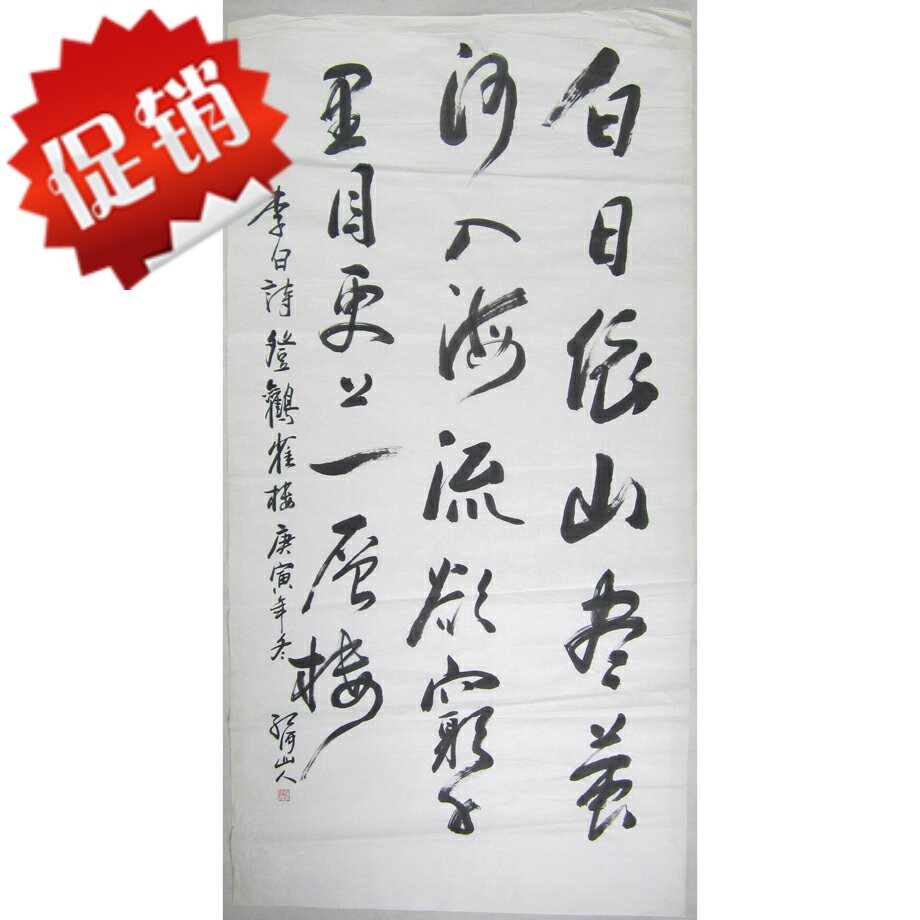 白日依山尽黄
河入海流欲窮千
里目更上一層楼
李白詩登鸛雀楼庚寅年冬
山人
促销